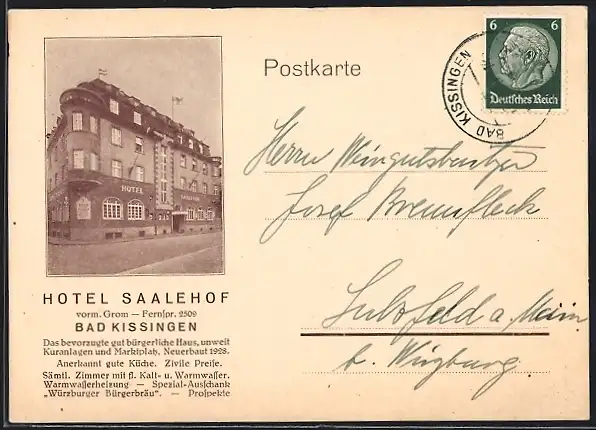 HOTEL
SAALEHOF
HOTEL SAALEHOF
vorm. Grom — Fernspr. 2509
BAD KISSINGEN
Das bevorzugte gut bürgerliche Haus, unweit
Kuranlagen und Marktplatz. Neuerbaut 1928.
Anerkannt gute Küche. Zivile Preise.
Sämtl. Zimmer mit fl. Kalt- u. Warmwasser.
Warmwasserheizung — Spezial-Ausschank
„Würzburger Bürgerbräu“. — Prospekte
Postkarte
6 6
Deutsches Reich
BAD KISSINGEN
Herrn Weingutsbesitzer
Josef Brennfleck
Sulzfeld a. Main
b. Würzburg